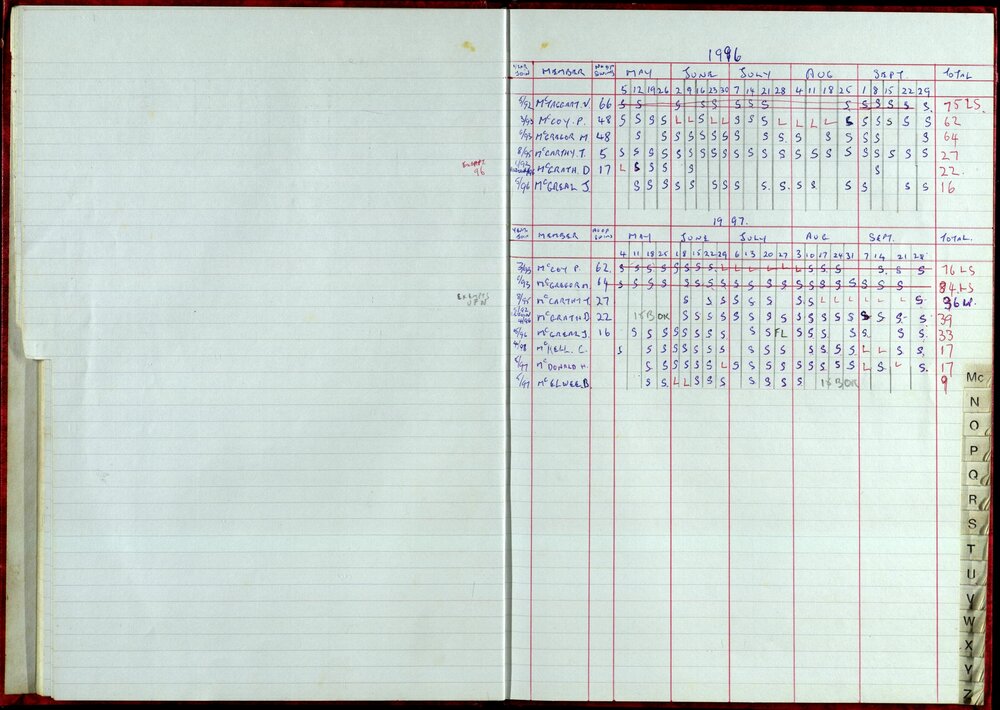 1996
YEAR JOIN MEMBER NO OF SWIMS MAY JUNE JULY AUG SEPT TOTAL
5 12 19 26 2 9 16 23 30 7 14 21 28 4 11 18 25 1 8 15 22 29
5/92 McTAGGART.V. 66 S S S S S S S S S S S S S S 75 LS.
3/93 McCOY. P. 48 S S S S L L S L L S S S L L L L S S S S S S 62
5/93 McGREGOR M 48 S S S S S S S S S S S S S S S S 64
8/95 McCARTHY.T. 5 S S S S S S S S S S S S S S S S S S S S S S 27
EXEMPT 96
McGRATH D 17 L S S S S S 22
5/96 McGREAL J. S S S S S S S S S S S S S S S 16
1997.
YEAR JOIN MEMBER NO OF SWIMS MAY JUNE JULY AUG SEPT. TOTAL.
4 11 18 25 1 8 15 22 29 6 13 20 27 3 10 17 24 31 7 14 21 28
3/93 McCOY P. 62 S S S S S S S S L L L L L L S S S S S S 76 LS
5/93 McGREGOR M. 64 S S S S S S S S S S S S S S S S S S S S S 84 LS
8/95 McCARTHY T 27 S S S S S S S S S L L L L L L S 36
McGRATH D. 22 S S S S S S S S S S S S S S S S S 39
5/96 McGREAL J. 16 S S S S S S S S S S S L S S S S S S S 33
McKELL. C. S S S S S S S S S S S S S S S L L S S 17
5/97 McDONALD H. S S S S S S L S S S S S S S S L S L S 17
5/97 McELWEE B. S S L L S S S S S S S S 9
Mc
N
O
P
Q
R
S
T
U
V
W
X
Y
Z